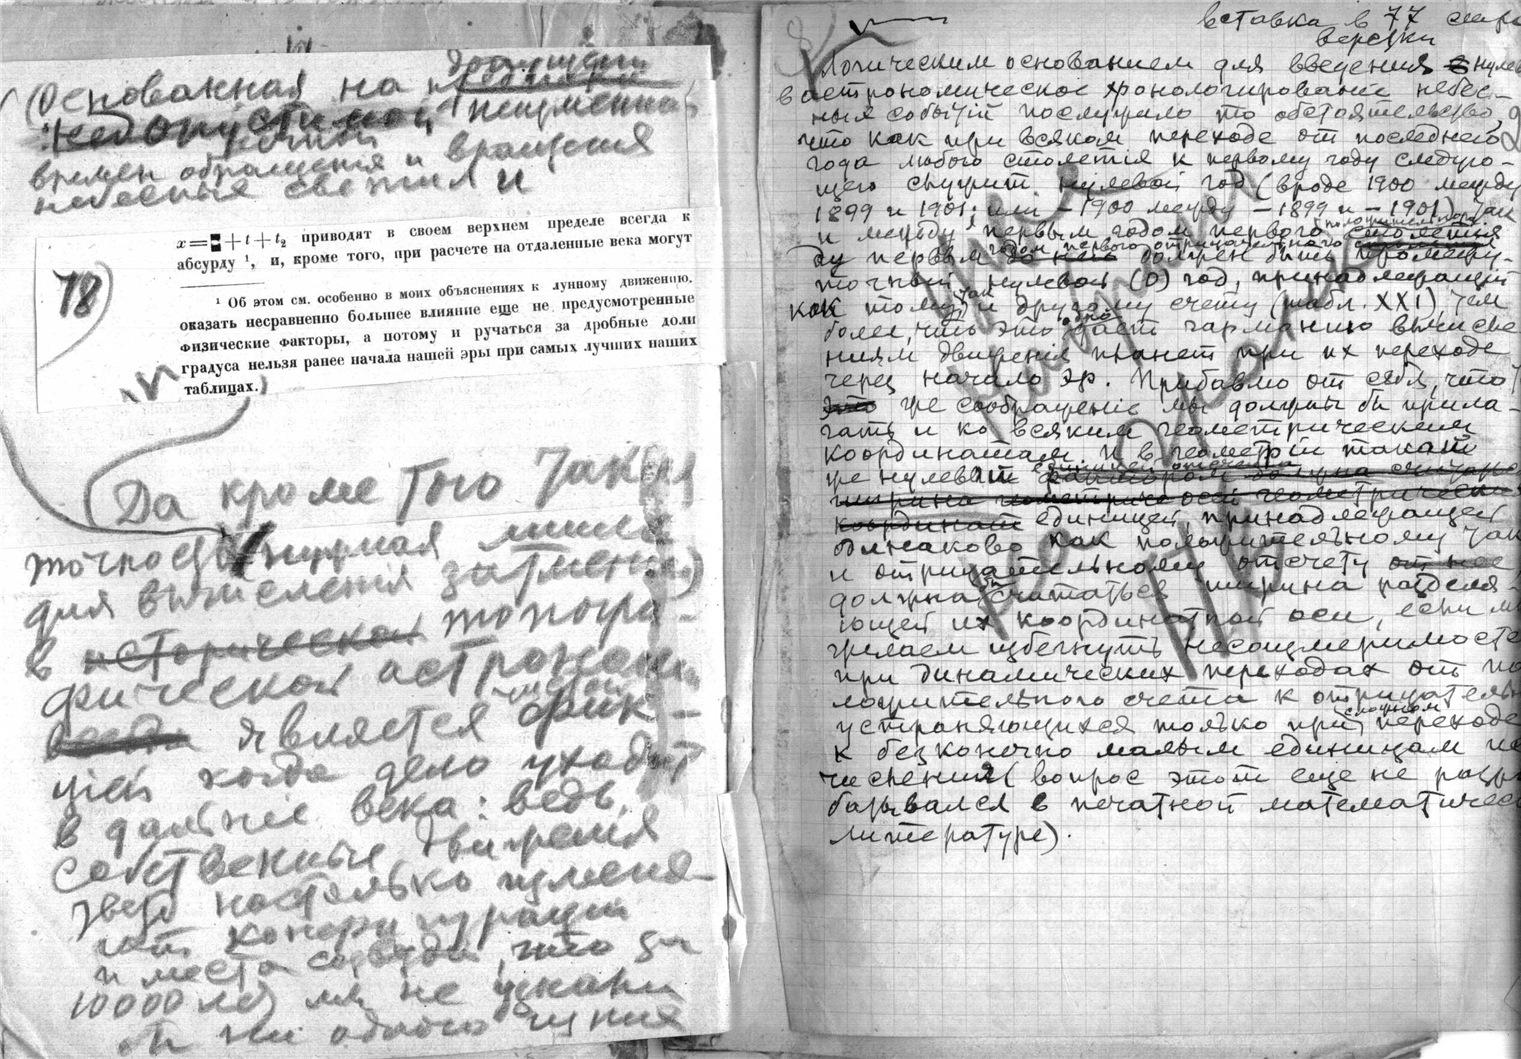 (Основанная на
неизменная
времен обращения и вращения
небесных светил и
78
x = + t + t₂ приводят в своем верхнем пределе всегда к
абсурду ¹, и, кроме того, при расчете на отдаленные века могут
¹ Об этом см. особенно в моих объяснениях к лунному движению.
оказать несравненно большее влияние еще не предусмотренные
физические факторы, а потому и ручаться за дробные доли
градуса нельзя ранее начала нашей эры при самых лучших наших
таблицах.
Да кроме того такая
точность нужная лишь
для вычисления затмений)
в историческая топогра-
фической астрономии
является фик-
ціей когда дело уходит
в дальніе века: ведь
собственные движенія
звезд настолько изменя-
ют конфигурации
и места созвездий, что за
10000 лет мы не узнали
бы ни одного из них
вставка в 77 стр
верстки
Логическим основанием для введения
в астрономическое хронологирование небес-
ных событій послужило то обстоятельство,
что как при всяком переходе от последнего
года любого столетія к первому году следую-
щего служит нулевой год (вроде 1900 между
1899 и 1901; или -1900 между -1899 и -1901) так
и между первым годом первого столетія
первым годом первого отрицательного должен быть промежу-
точный нулевой (0) год, принадлежащий
как тому так и другому счету (табл. XXI), тем
более, что это дает гармонию вычисле
ниям движенія планет при их переходе
через начало эр. Прибавлю от себя, что
это же соображеніе мы должны бы прила-
гать и ко всяким геометрическим
координатам. И в геометріи такой
же нулевой
координат единицей, принадлежащей
одинаково как положительному так
и отрицательному отсчету от нее
должна бы считаться ширина разделя-
ющей их координатной оси, если мы
желаем избегнуть несоизмеримостей
при динамических переходах от по
ложительного счета к отрицательн
устраняющихся только при сложном переходе
к безконечно малым единицам ис
числения (вопрос этот еще не разра
батывался в печатной математичес
литературе).